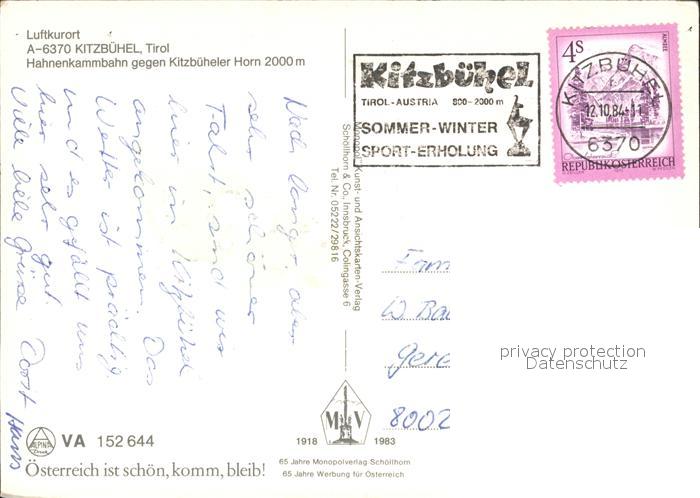 Luftkurort
A-6370 KITZBÜHEL, Tirol
Hahnenkammbahn gegen Kitzbüheler Horn 2000 m
Kitzbühel
TIROL-AUSTRIA 800-2000 m
SOMMER-WINTER
SPORT-ERHOLUNG
4S
ALMSEE
KITZBÜHEL
12.10.84-11
6370
REPUBLIK ÖSTERREICH
Nach langer, aber
sehr schöner
Fahrt, sind wir
hier in Kitzbühel
angekommen. Das
Wetter ist prächtig
und es gefällt uns
hier sehr gut.
Viele liebe Grüsse
Hans
Monopol Kunst- und Ansichtskarten-Verlag
Schöllhorn & Co., Innsbruck, Colingasse 6
Tel. Nr. 05222/29816
W Bau
Gere
8002
privacy protection
Datenschutz
M V
1918 1983
65 Jahre Monopolverlag-Schöllhorn
65 Jahre Werbung für Österreich
ALPINA
Druck
VA 152 644
Österreich ist schön, komm, bleib!